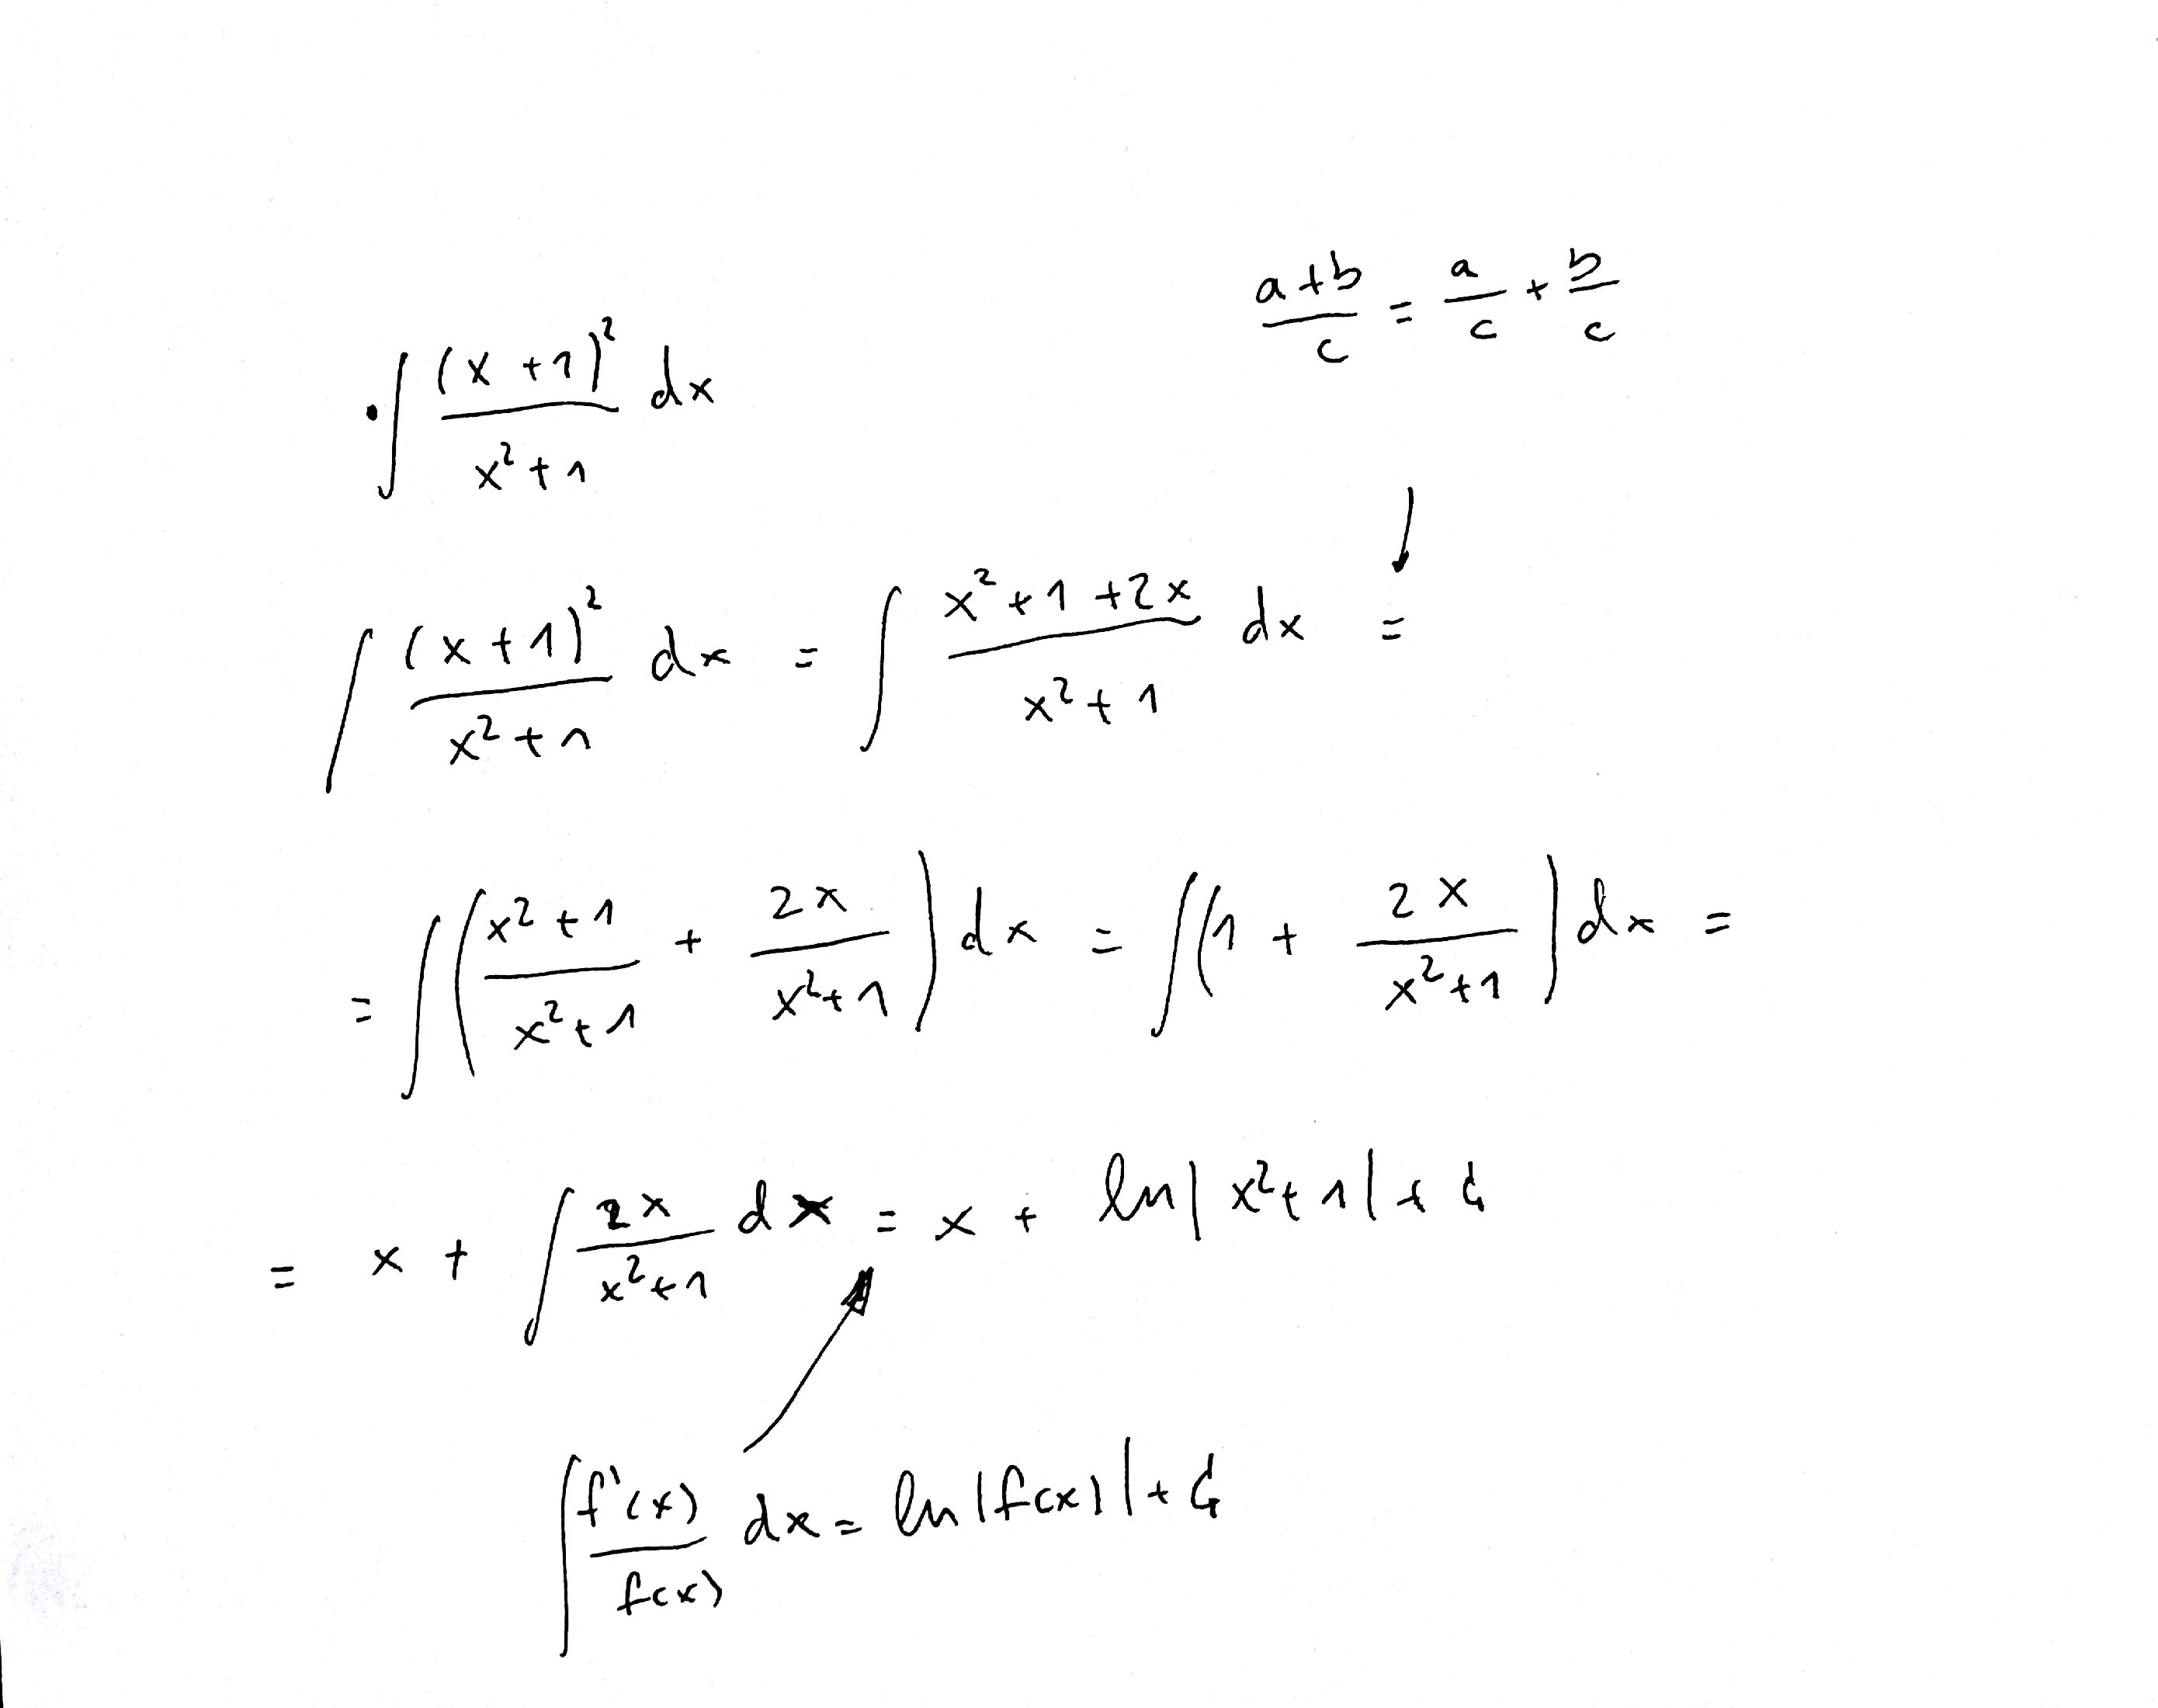 (a+b)/c = a/c + b/c
• ∫ (x+1)²/(x²+1) dx
∫ (x+1)²/(x²+1) dx = ∫ (x²+1+2x)/(x²+1) dx =
= ∫ ((x²+1)/(x²+1) + 2x/(x²+1)) dx = ∫ (1 + 2x/(x²+1)) dx =
= x + ∫ 2x/(x²+1) dx = x + ln|x²+1| + C
∫ f'(x)/f(x) dx = ln|f(x)| + C